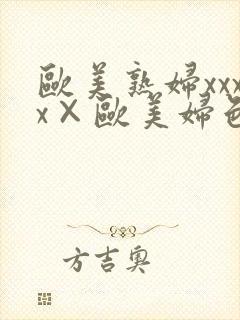 歐美熟婦xxx
x×歐美婦色
方吉奧